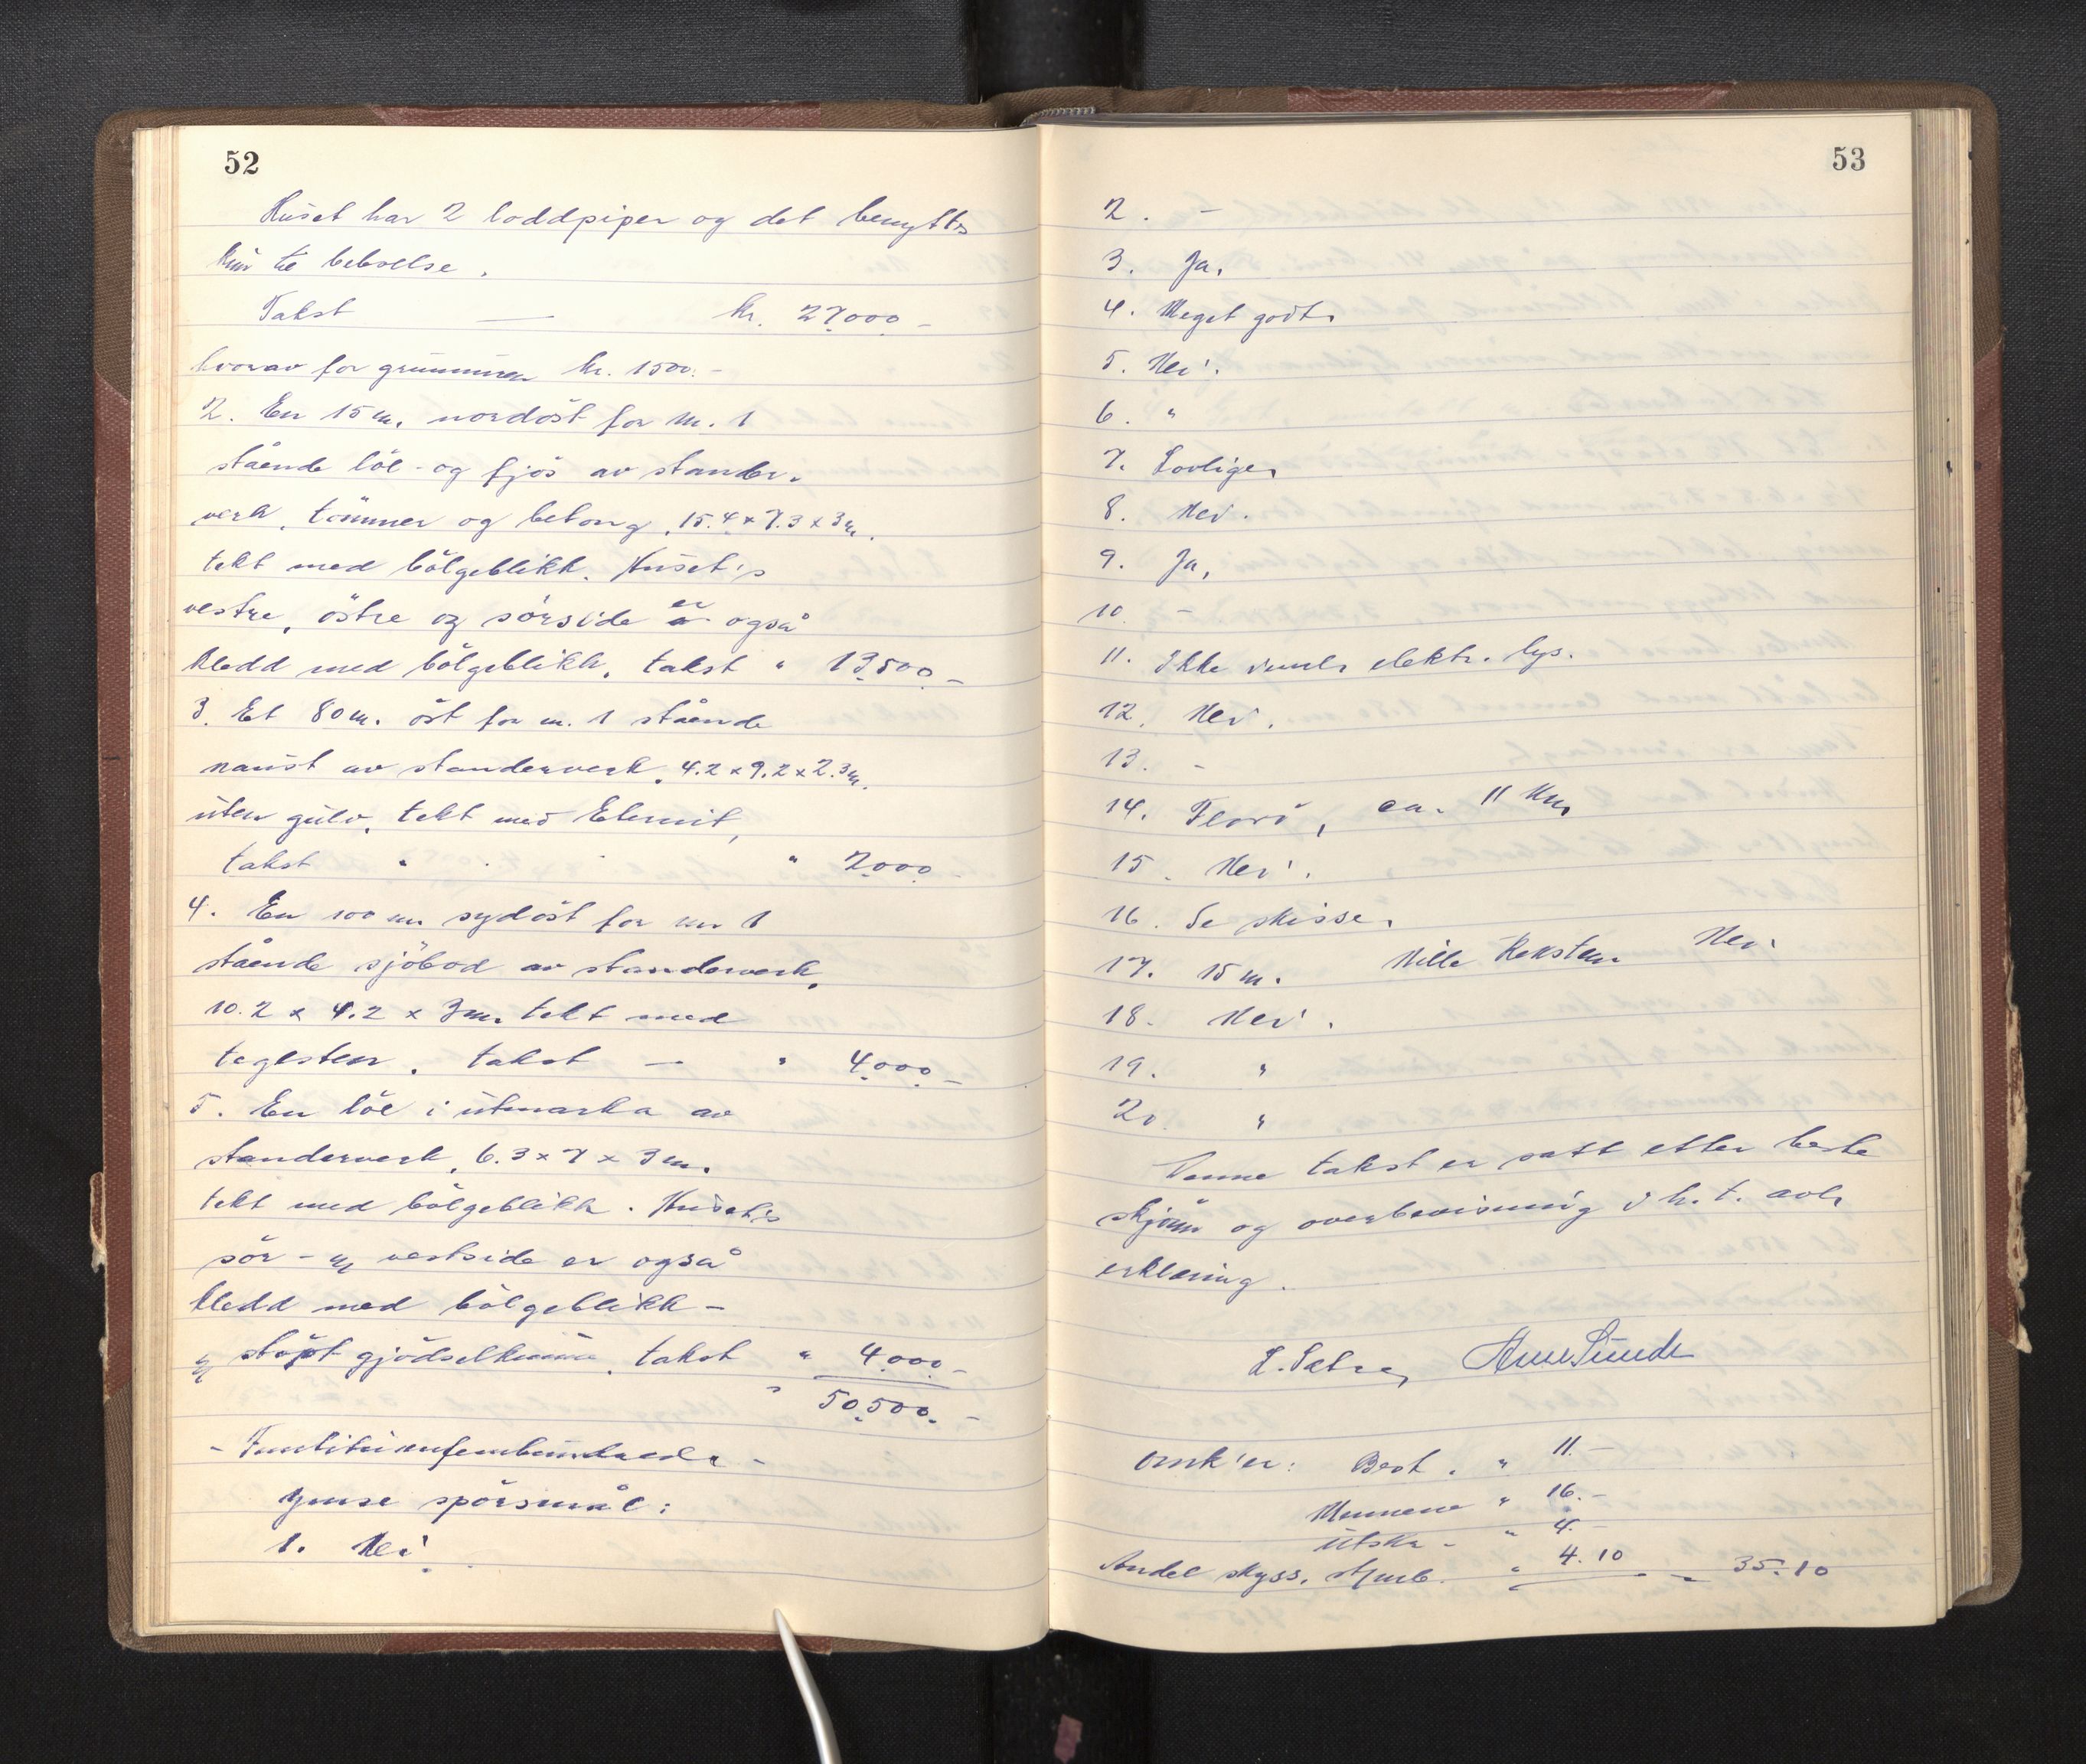 52
Huset har 2 loddpiper og det benyttes
kun til beboelse.
Takst — kr. 27.000.-
hvorav for grunnmuren kr. 1500.-
2. En 15 m. nordöst for nr. 1
stående löe- og fjös av stander-
verk, tömmer og betong, 15.4 x 7.3 x 3 m.
tekt med bölgeblikk. Huset's
vestre, östre og sörside er også
kledd med bölgeblikk, takst " 13.500.-
3. Et 80 m. öst for nr. 1 stående
naust av standerverk, 4.2 x 9.2 x 2.3 m.
uten gulv, tekt med Eternit,
takst " " 2.000.-
4. En 100 m sydöst for nr 1
stående sjöbod av standerverk,
10.2 x 4.2 x 3 m. tekt med
teglsten, takst — " 4.000.-
5. En löe i utmarka av
standerverk, 6.3 x 7 x 3 m.
tekt med bölgeblikk. Huset's
sör- og vestside er også
kledd med bölgeblikk -
og stöpt gjödselkum, takst " 4.000.-
" 50.500.-
- Femtitusenfemhundrede -
Ymse spörsmål:
1. Nei
53
2. -
3. Ja.
4. Meget godt.
5. Nei.
6. "
7. Lovlige.
8. Nei.
9. Ja.
10. -
11. Ikke innl. elektr. lys.
12. Nei.
13. -
14. Florö, ca. 11 km
15. Nei.
16. Se skisse.
17. 15 m. Nille Reksten Nei
18. Nei.
19. "
20. "
Denne takst er satt etter beste
skjönn og overbevisning i h. t. avh.
erklæring.
L. Sætre, Arne Sunde
Omk'er: Best. " 11.-
Mennene " 16.-
Utskr. " 4.-
Andel skyss, " 4.10 - 35.10